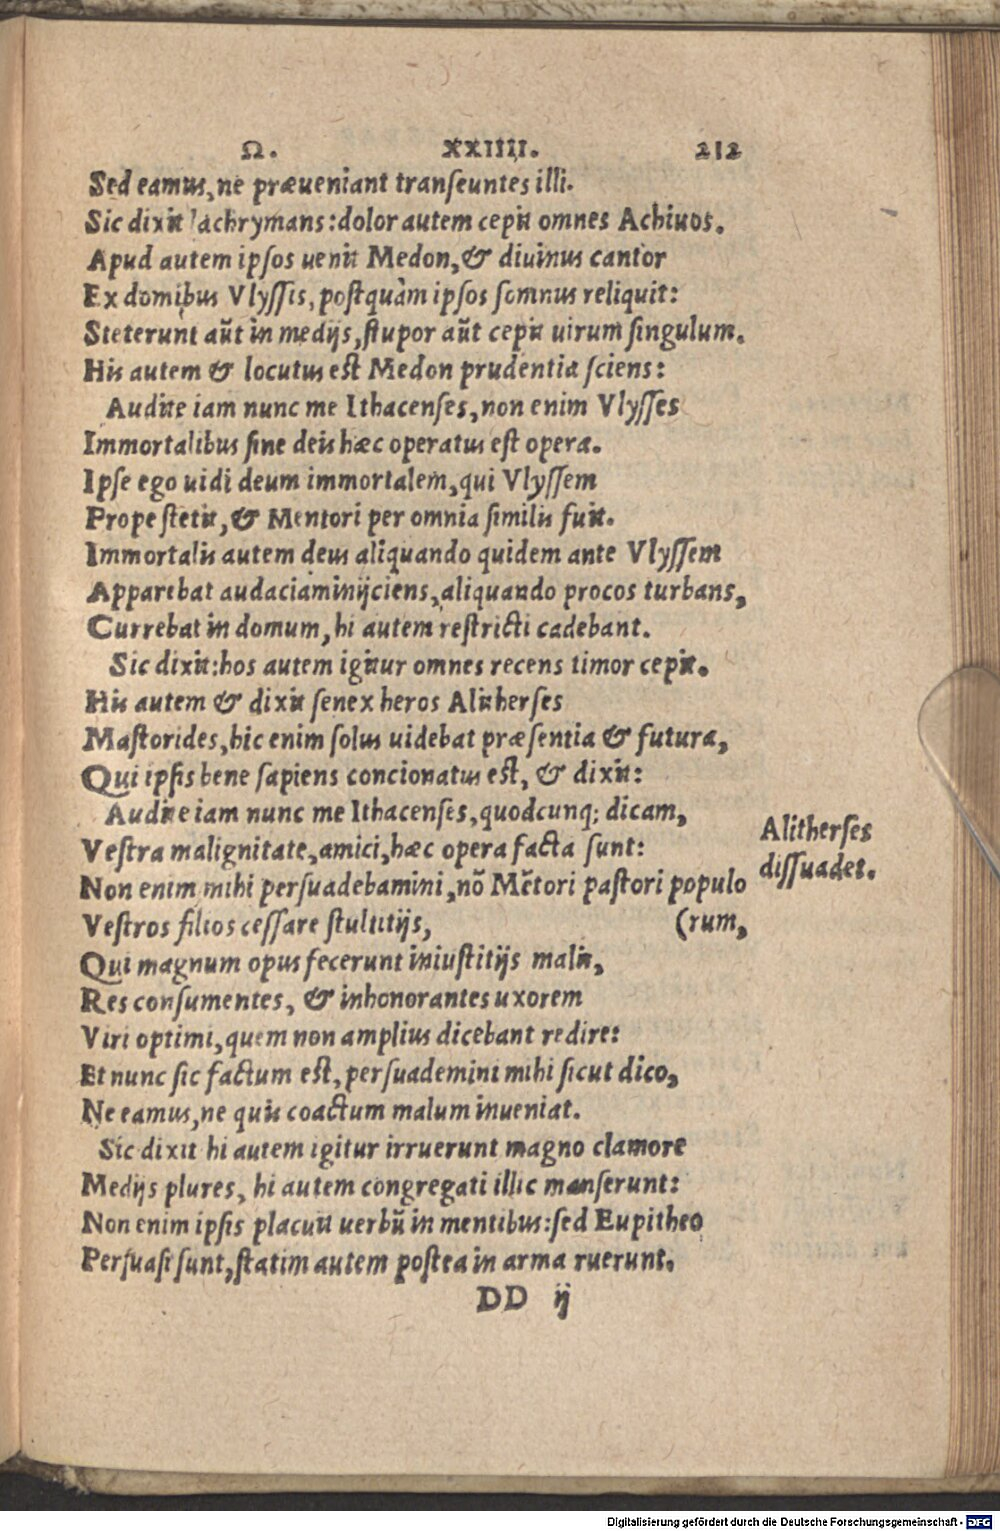 Ω. XXIIII. 212
Sed eamus, ne præueniant transeuntes illi.
Sic dixit lachrymans: dolor autem cepit omnes Achiuos.
Apud autem ipsos uenit Medon, & diuinus cantor
Ex domibus Vlyssis, postquàm ipsos somnus reliquit:
Steterunt aũt in medijs, stupor aũt cepit uirum singulum.
His autem & locutus est Medon prudentia sciens:
Audite iam nunc me Ithacenses, non enim Vlysses
Immortalibus sine deis hæc operatus est opera.
Ipse ego uidi deum immortalem, qui Vlyssem
Prope stetit, & Mentori per omnia similis fuit.
Immortalis autem deus aliquando quidem ante Vlyssem
Apparebat audaciam inijciens, aliquando procos turbans,
Currebat in domum, hi autem restricti cadebant.
Sic dixit: hos autem igitur omnes recens timor cepit.
His autem & dixit senex heros Alitherses
Mastorides, hic enim solus uidebat præsentia & futura,
Qui ipsis bene sapiens concionatus est, & dixit:
Audite iam nunc me Ithacenses, quodcunq; dicam,
Vestra malignitate, amici, hæc opera facta sunt:
Alitherses
dissuadet.
Non enim mihi persuadebamini, nõ Mẽtori pastori populo
Vestros filios cessare stultitijs, (rum,
Qui magnum opus fecerunt iniustitijs malis,
Res consumentes, & inhonorantes uxorem
Viri optimi, quem non amplius dicebant redire:
Et nunc sic factum est, persuademini mihi sicut dico,
Ne eamus, ne quis coactum malum inueniat.
Sic dixit hi autem igitur irruerunt magno clamore
Medijs plures, hi autem congregati illic manserunt:
Non enim ipsis placuit uerbũ in mentibus: sed Eupitheo
Persuasi sunt, statim autem postea in arma ruerunt.
DD ij
Digitalisierung gefördert durch die Deutsche Forschungsgemeinschaft - DFG